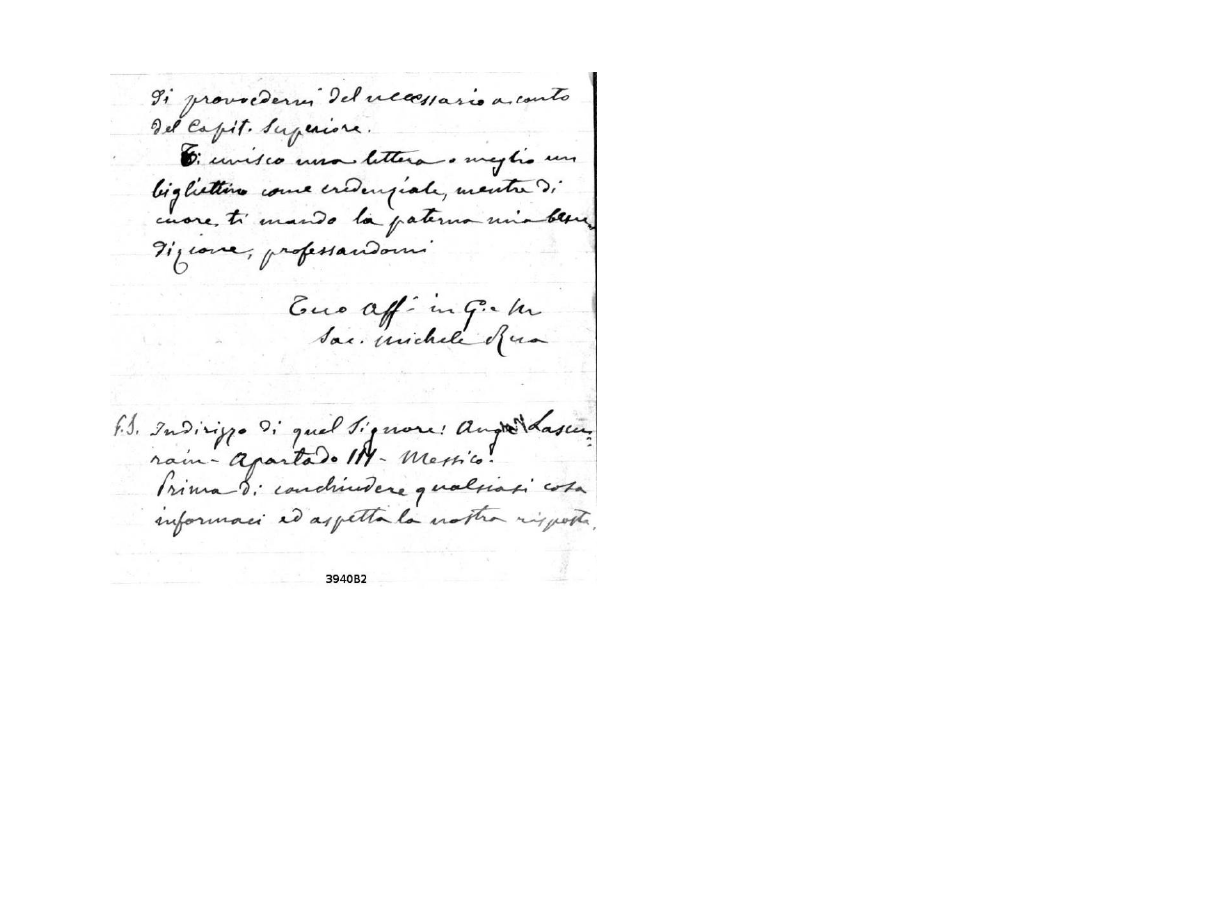 di provvedervi del necessario a conto
del Capit. Superiore.
Ti unisco una lettera o meglio un
bigliettino come credenziale, mentre di
cuore ti mando la paterna mia bene-
dizione, professandomi
Tuo aff. in G. e M
Sac. Michele Rua
P.S. Indirizzo di quel Signore: Angel Lascu=
rain - Apartado - Messico.
Prima di conchiudere qualsiasi cosa
informaci ed aspetta la nostra risposta.
3940B2